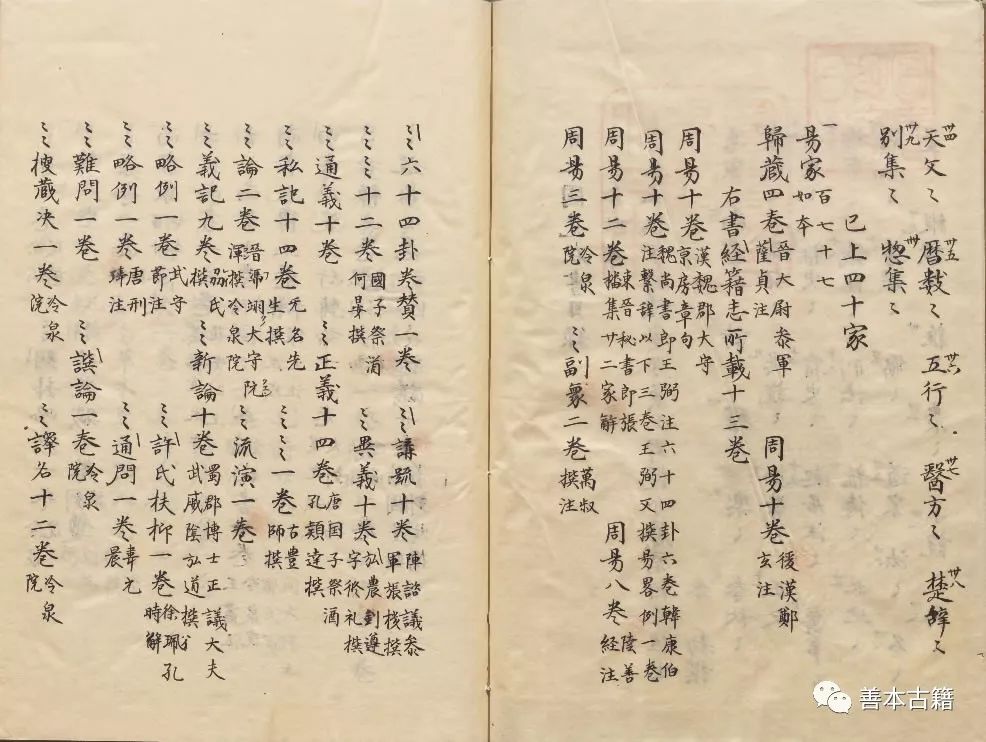 卅四 天文〻 卅五 曆数〻 卅六 五行〻 卅七 醫方〻 卅八 楚辝〻
卅九 別集〻 卌 惣集〻
已上四十家
一易家 百七十七 如本
歸蔵四巻 晉大尉叅軍 薩貞注 周易十巻 後漢鄭 玄注
右書経籍志所載十三巻
周易十巻 漢魏郡大守 京房章句
周易十巻 魏尚書郎王弼注六十四卦六巻韓康伯 注繫辞以下三巻王弼又撰易畧例一巻
周易十二巻 東晉秘書郎張 璠集廿二家解 周易八巻 陸善 経注
周易三巻 冷泉 院 〻〻副象二巻 萬叔 撰注
〻〻六十四卦巻賛一巻 〻〻講䟽十巻 陳諮議叅 軍張機撰
〻〻〻〻十二巻 國子祭酒 何晏撰 〻〻異義十巻 弘農劉遵 字修礼撰
〻〻通義十巻 〻〻正義十四巻 唐国子祭酒 孔穎達撰
〻〻私記十四巻 无名先 生撰 〻〻〻〻一巻 古豊 師撰
〻〻論二巻 晉馮翊大守阮 渾撰冷泉院 〻〻流演一巻
〻〻義記九巻 劦氏 撰 〻〻新論十巻 蜀郡博士正議大夫 武威陰弘道撰
〻〻略例一巻 武守 節注 〻〻許氏扶抑一巻 徐珮孔 時解
〻〻略例一巻 唐刑 璹注 〻〻通問一巻 韋元 晨
〻〻難問一巻 〻〻譔論一巻 冷泉 院
〻〻搜蔵决一巻 冷泉 院 〻〻譯名十二巻 冷泉 院
善本古籍